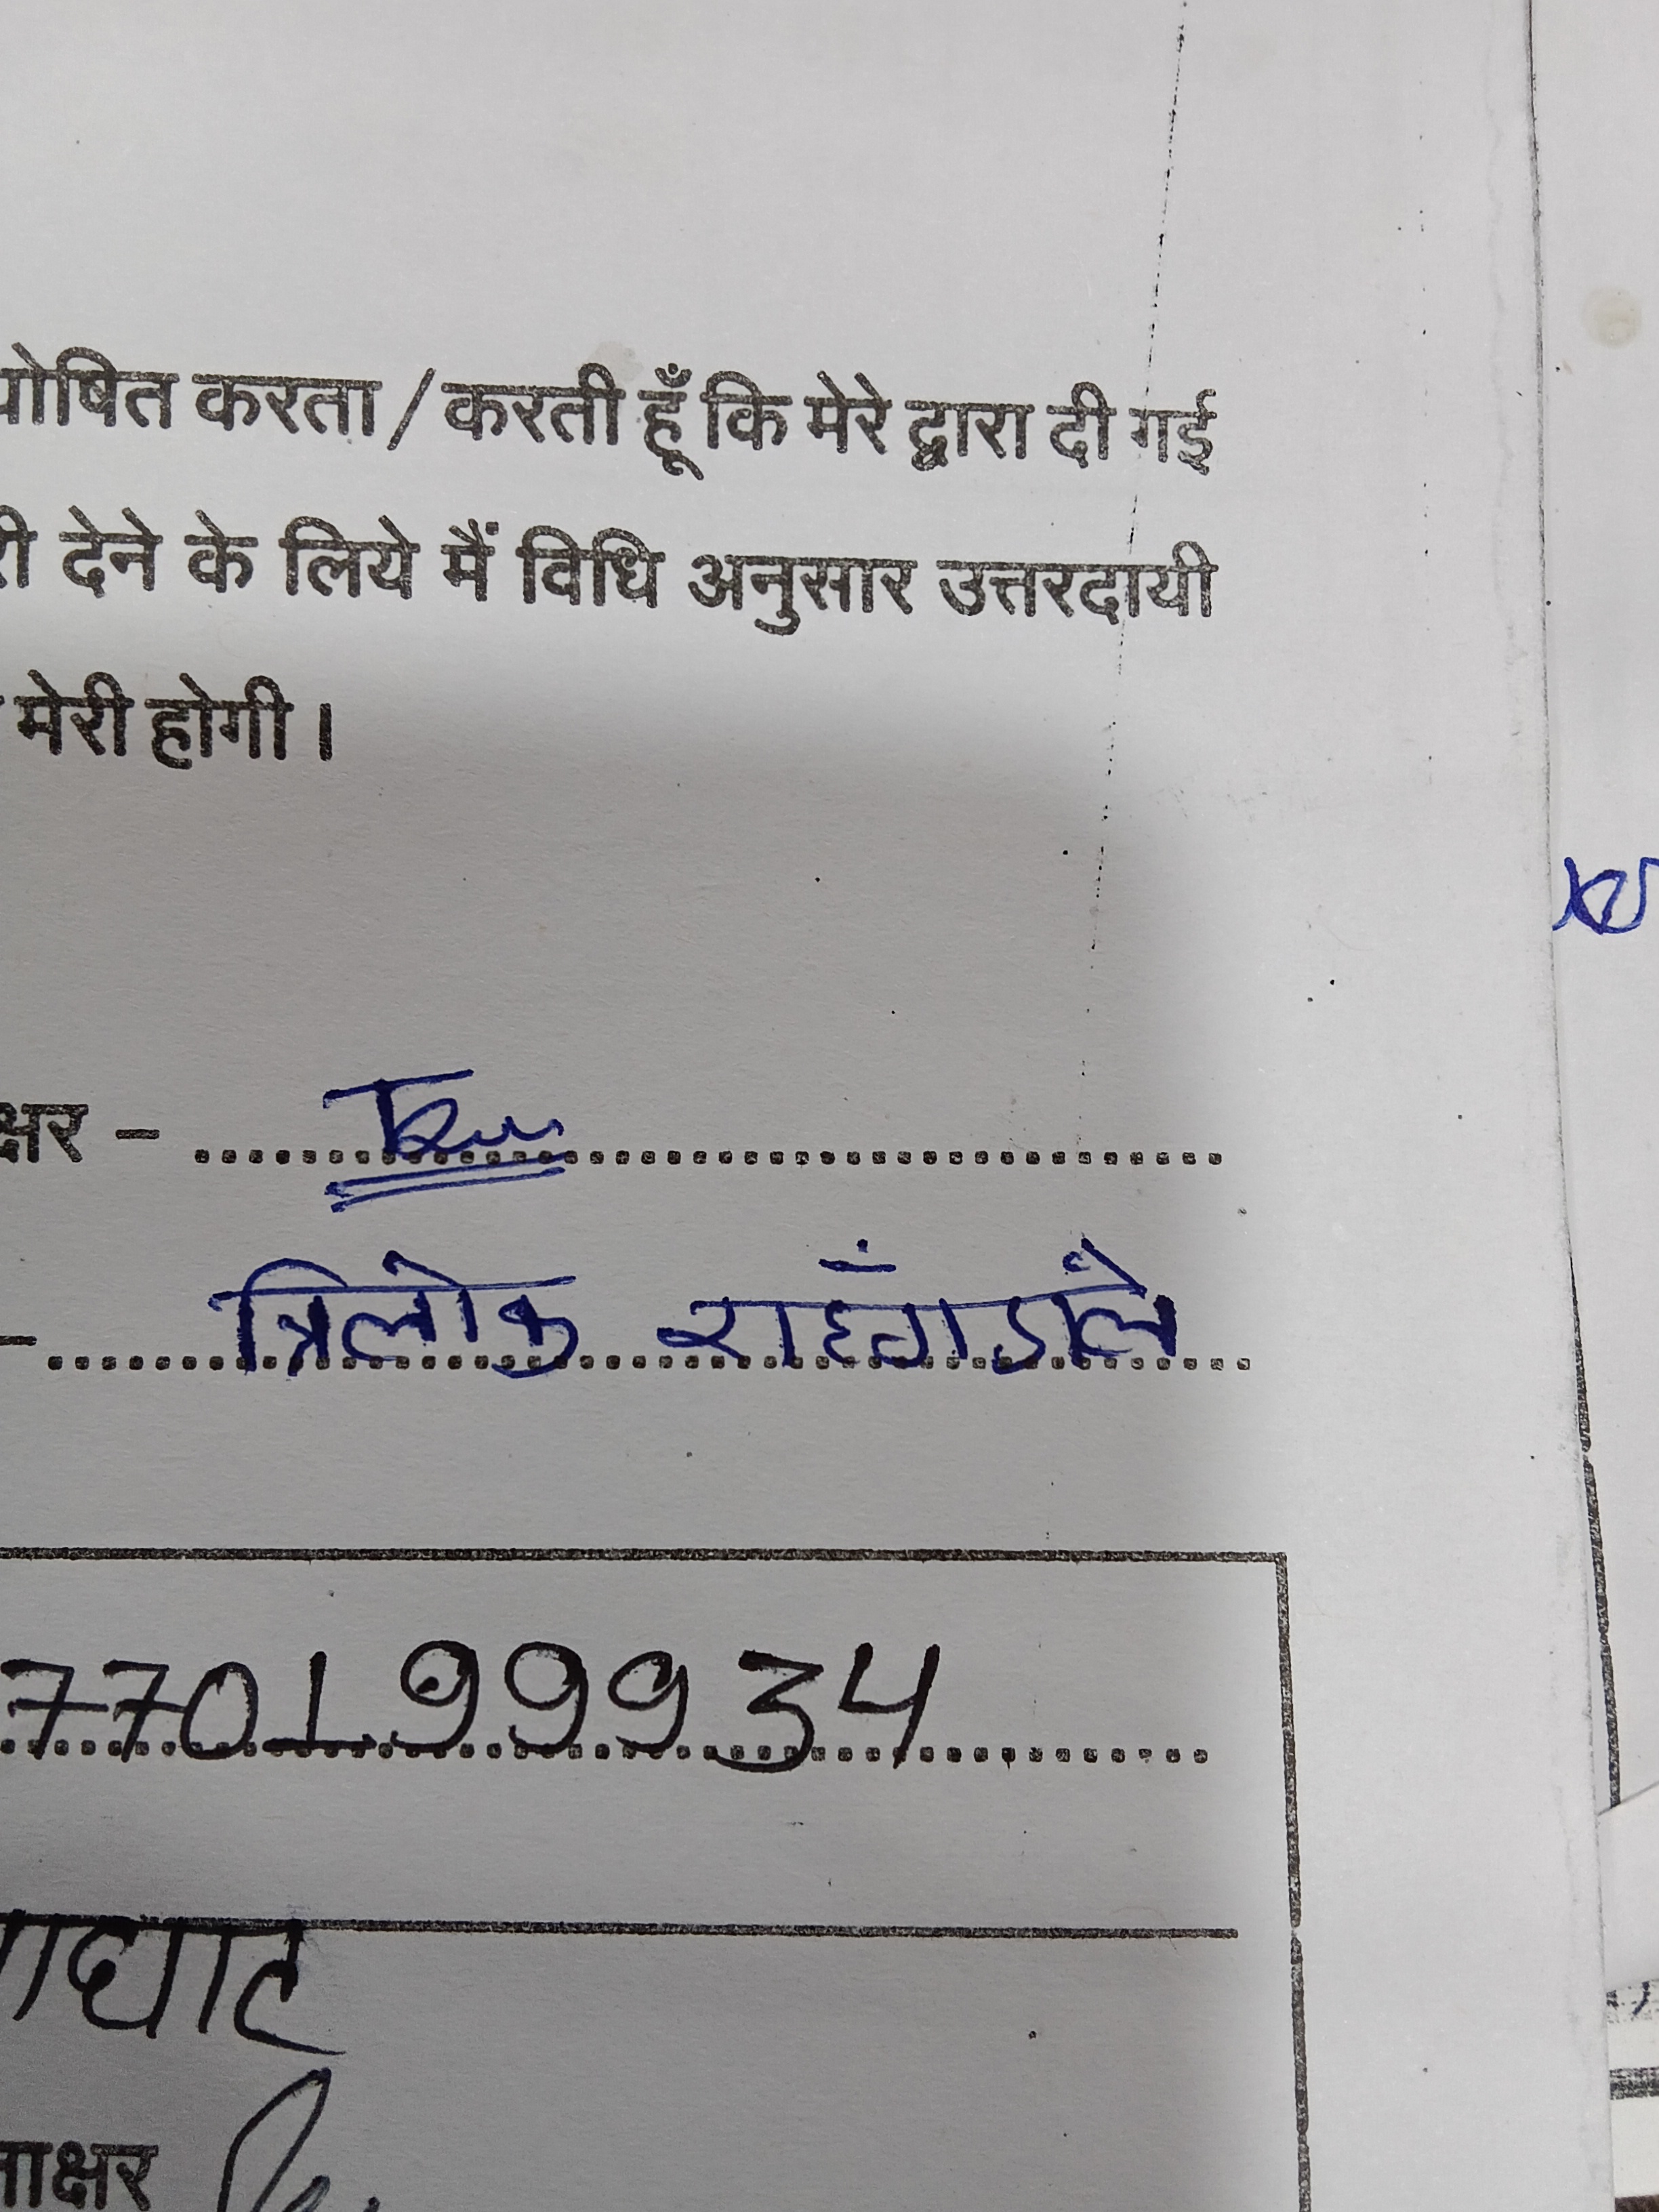 घोषित करता / करती हूँ कि मेरे द्वारा दी गई
री देने के लिये मैं विधि अनुसार उत्तरदायी
मेरी होगी।
क्षर -
- त्रिलोक राहँगडाले
770199934
ाघाट
ाक्षर